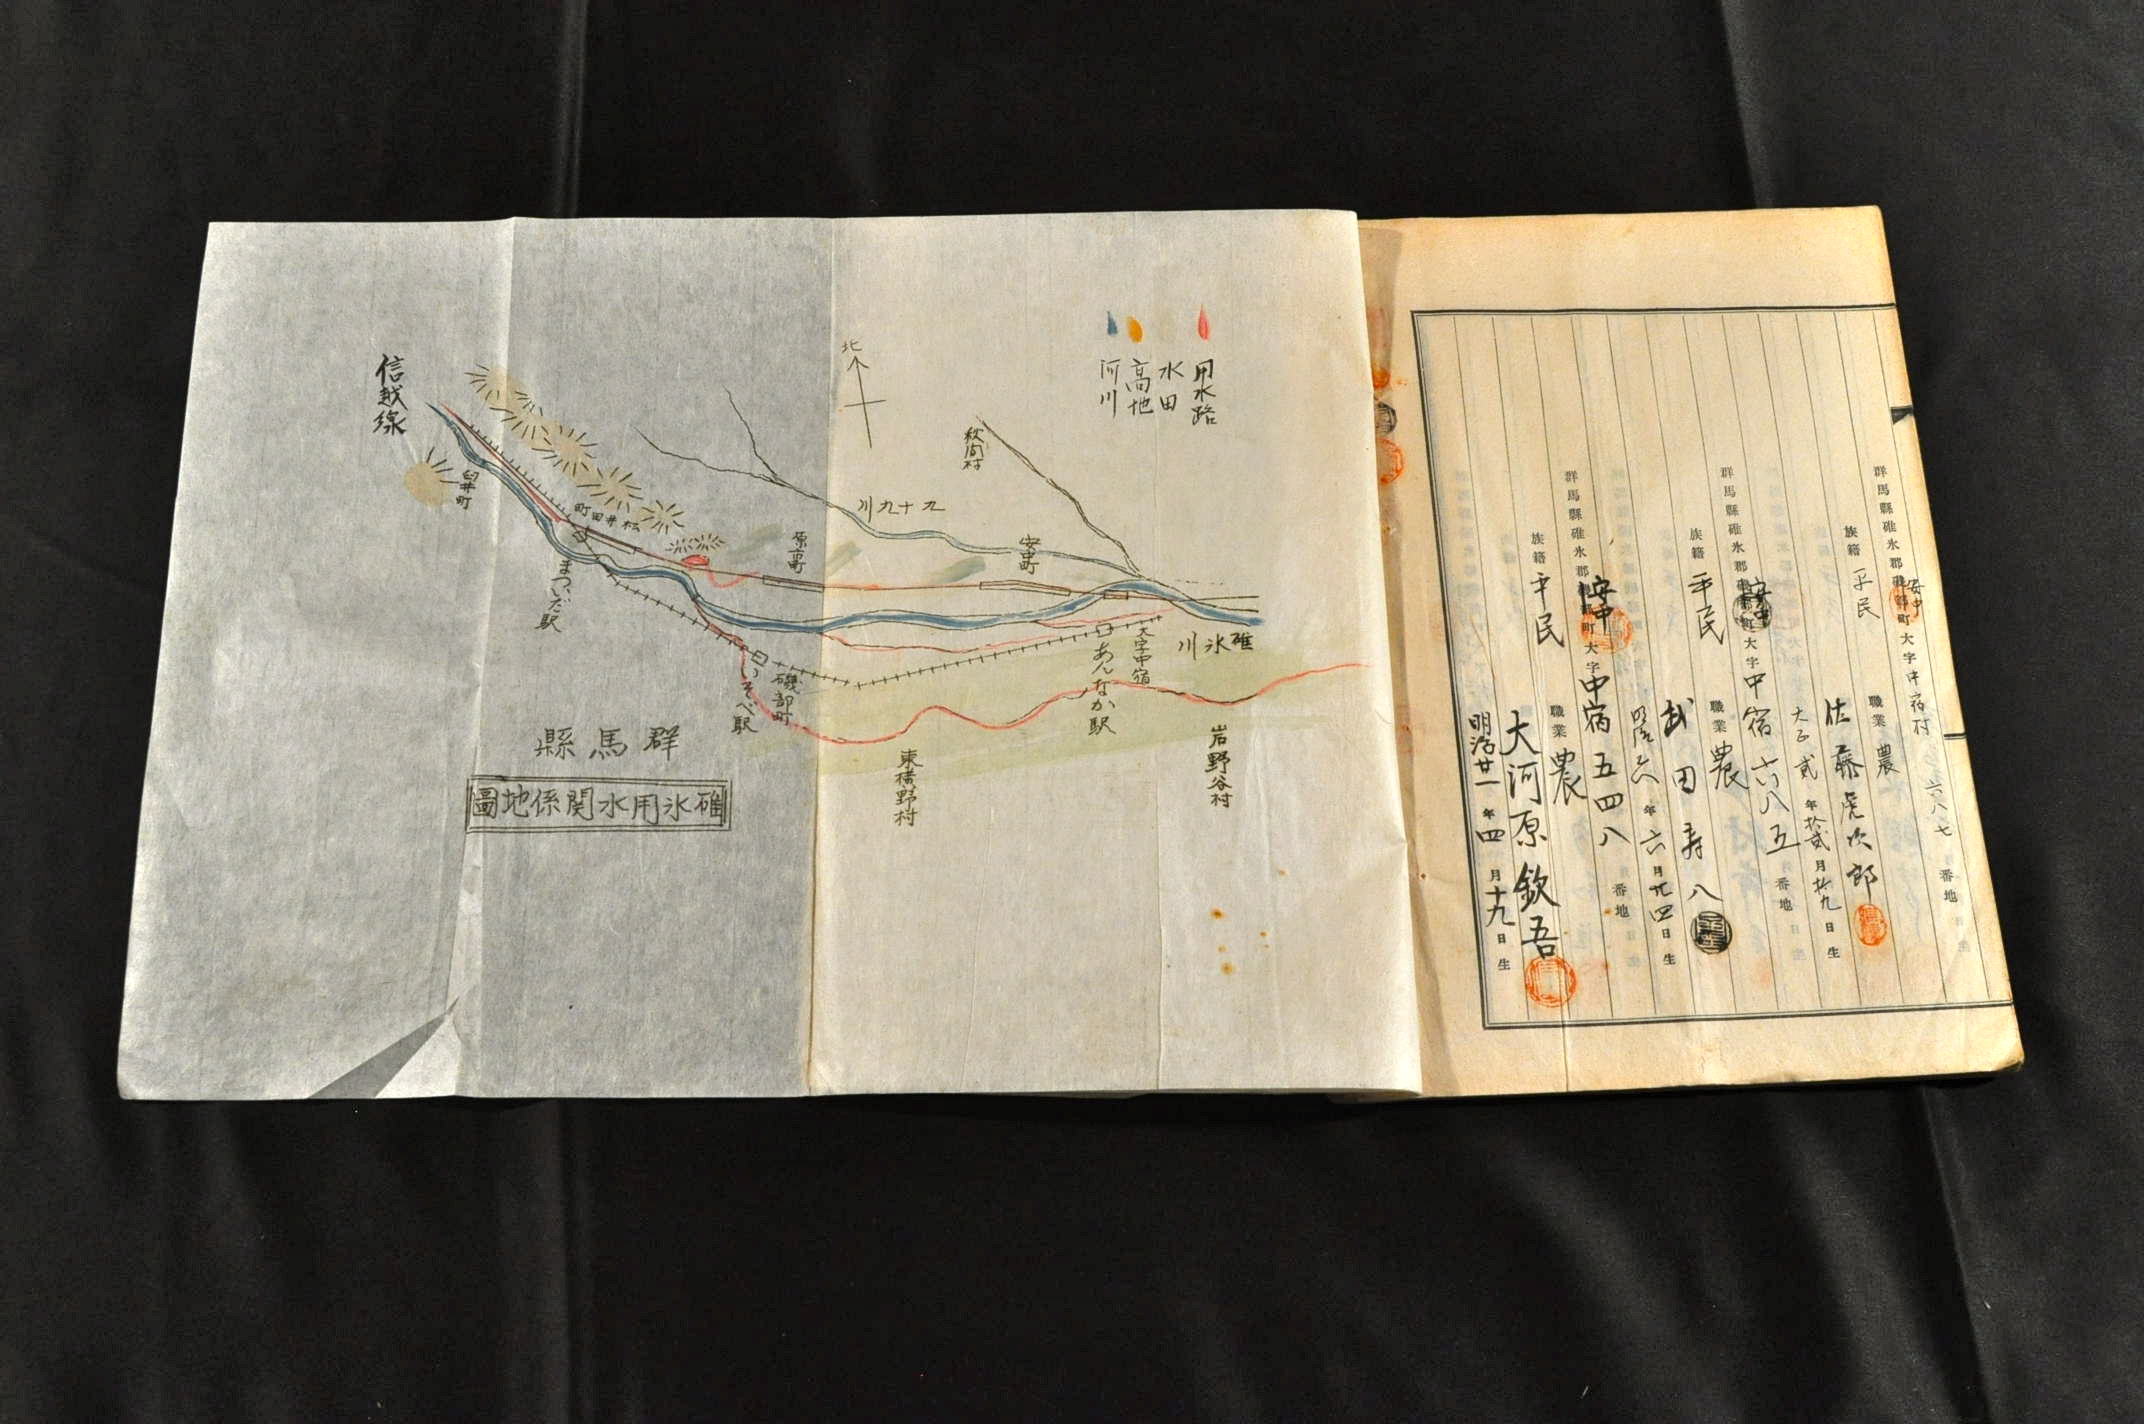 用水路
水田
高地
河川
北
秋間村
九十九川
安中町
原市町
松井田町
臼井町
信越線
まついだ駅
いそべ駅
磯部町
あんなか駅
大字中宿
碓氷川
岩野谷村
東横野村
群馬縣
碓氷用水関係地圖
群馬縣碓氷郡
安中
町大字中宿村
六八七
番地
族籍 平民
職業 農
佐藤虎次郎
大正貳年拾貳月
九日生
群馬縣碓氷郡
安中
町大字中宿六八五番地
族籍 平民
職業 農
武田寿八
年六月廿四日生
群馬縣碓氷郡
安中
町大字中宿五四八番地
族籍 平民
職業 農
大河原欽吾
明治廿一年四月十九日生